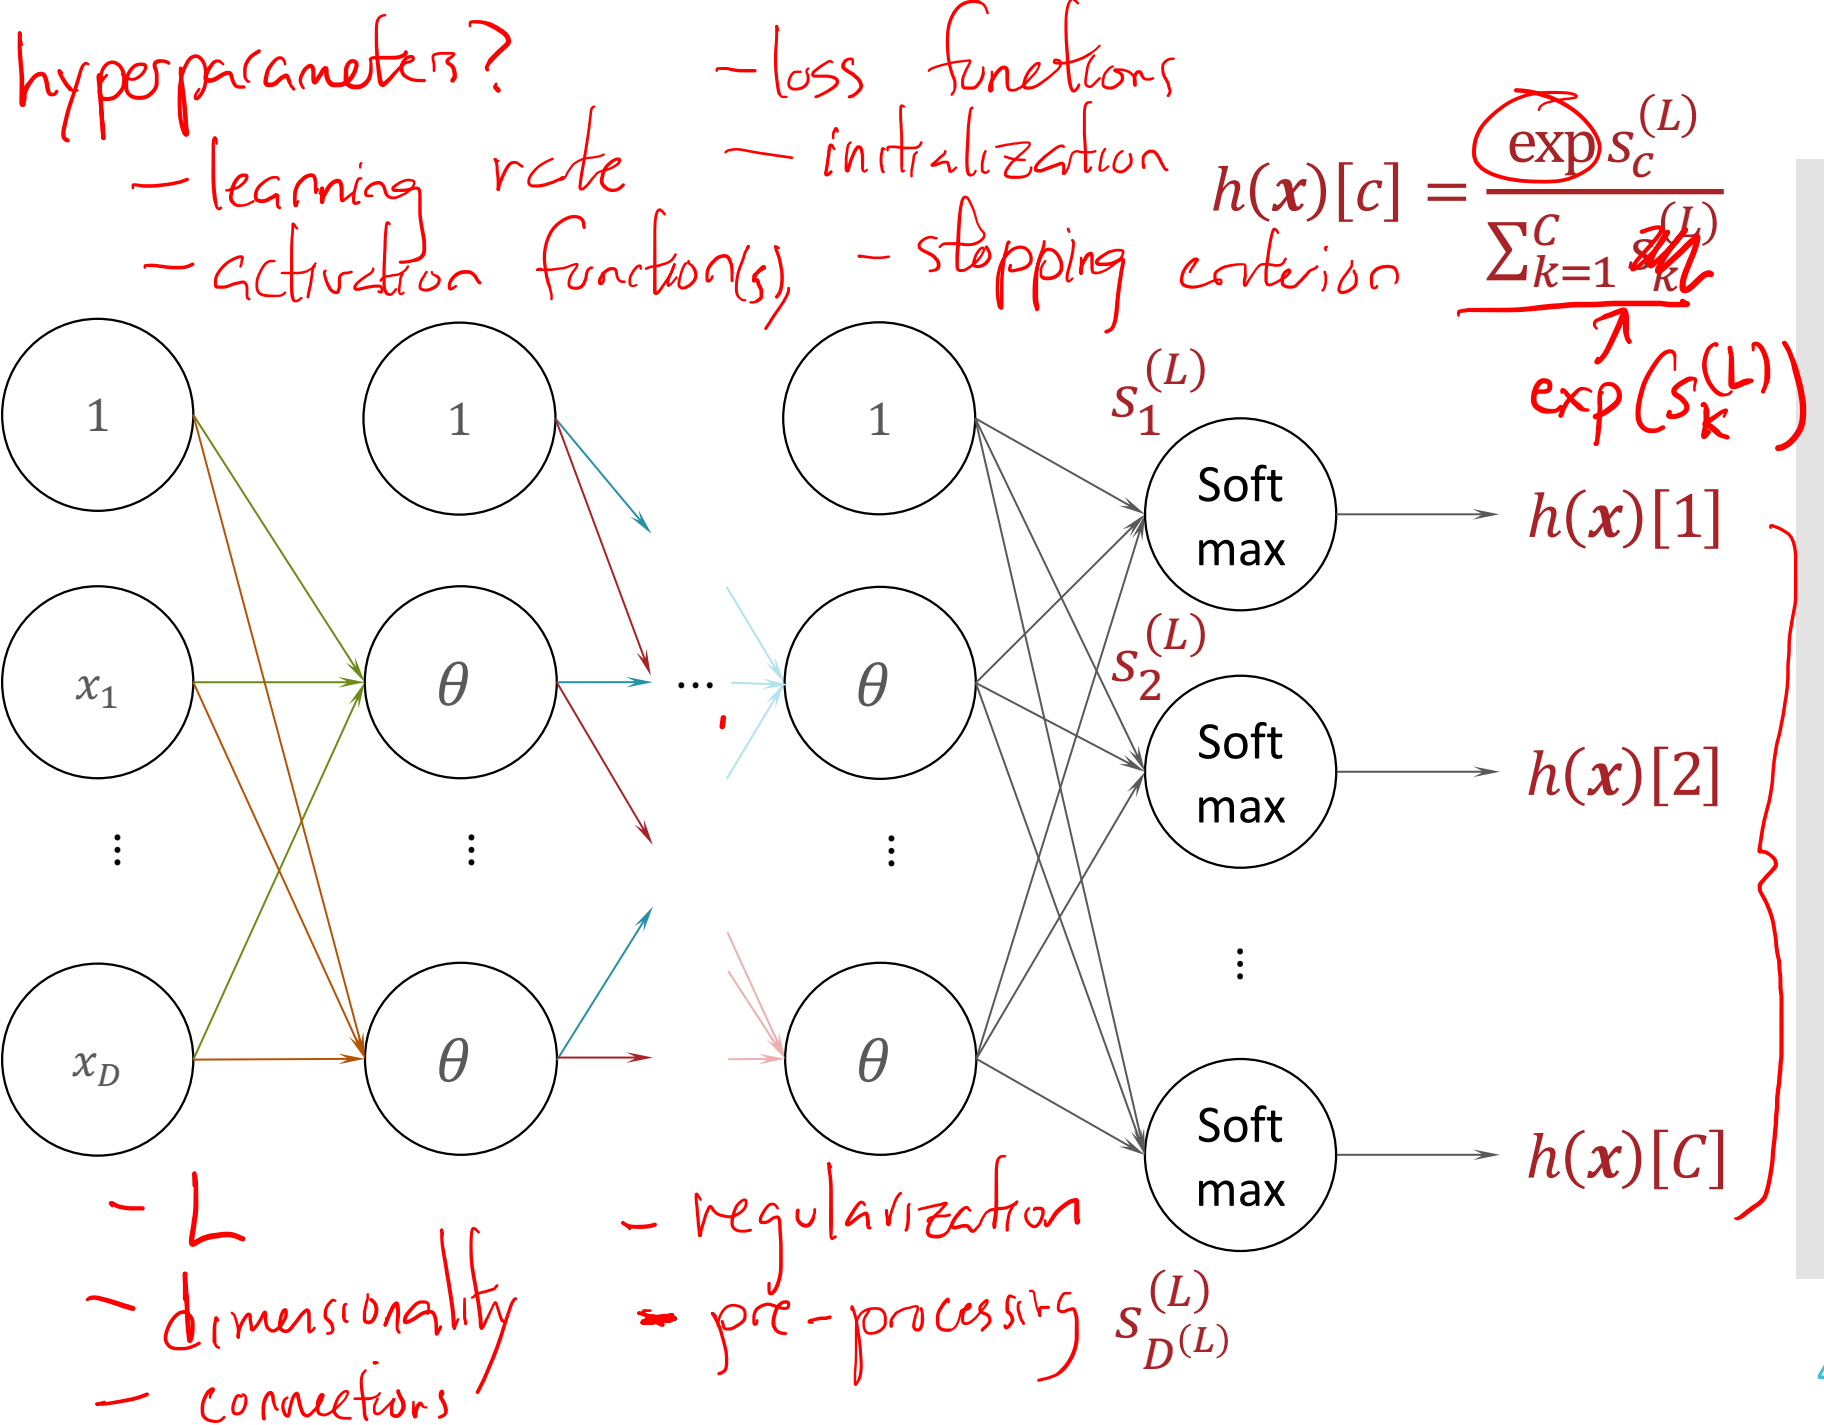 hyperparameters?
- learning rate
- activation function(s),
- loss functions
- initialization
- stopping criterion
h(x)[c] = exp s_c^(L) / ∑_{k=1}^C s_k^(L)
exp(s_k^(L))
1
1
1
s_1^(L)
Soft
max
h(x)[1]
x_1
θ
...
θ
s_2^(L)
Soft
max
h(x)[2]
⋮
⋮
⋮
⋮
x_D
θ
θ
Soft
max
h(x)[C]
- L
- dimensionality
- connections
- regularization
- pre-processing
s_{D^(L)}^(L)